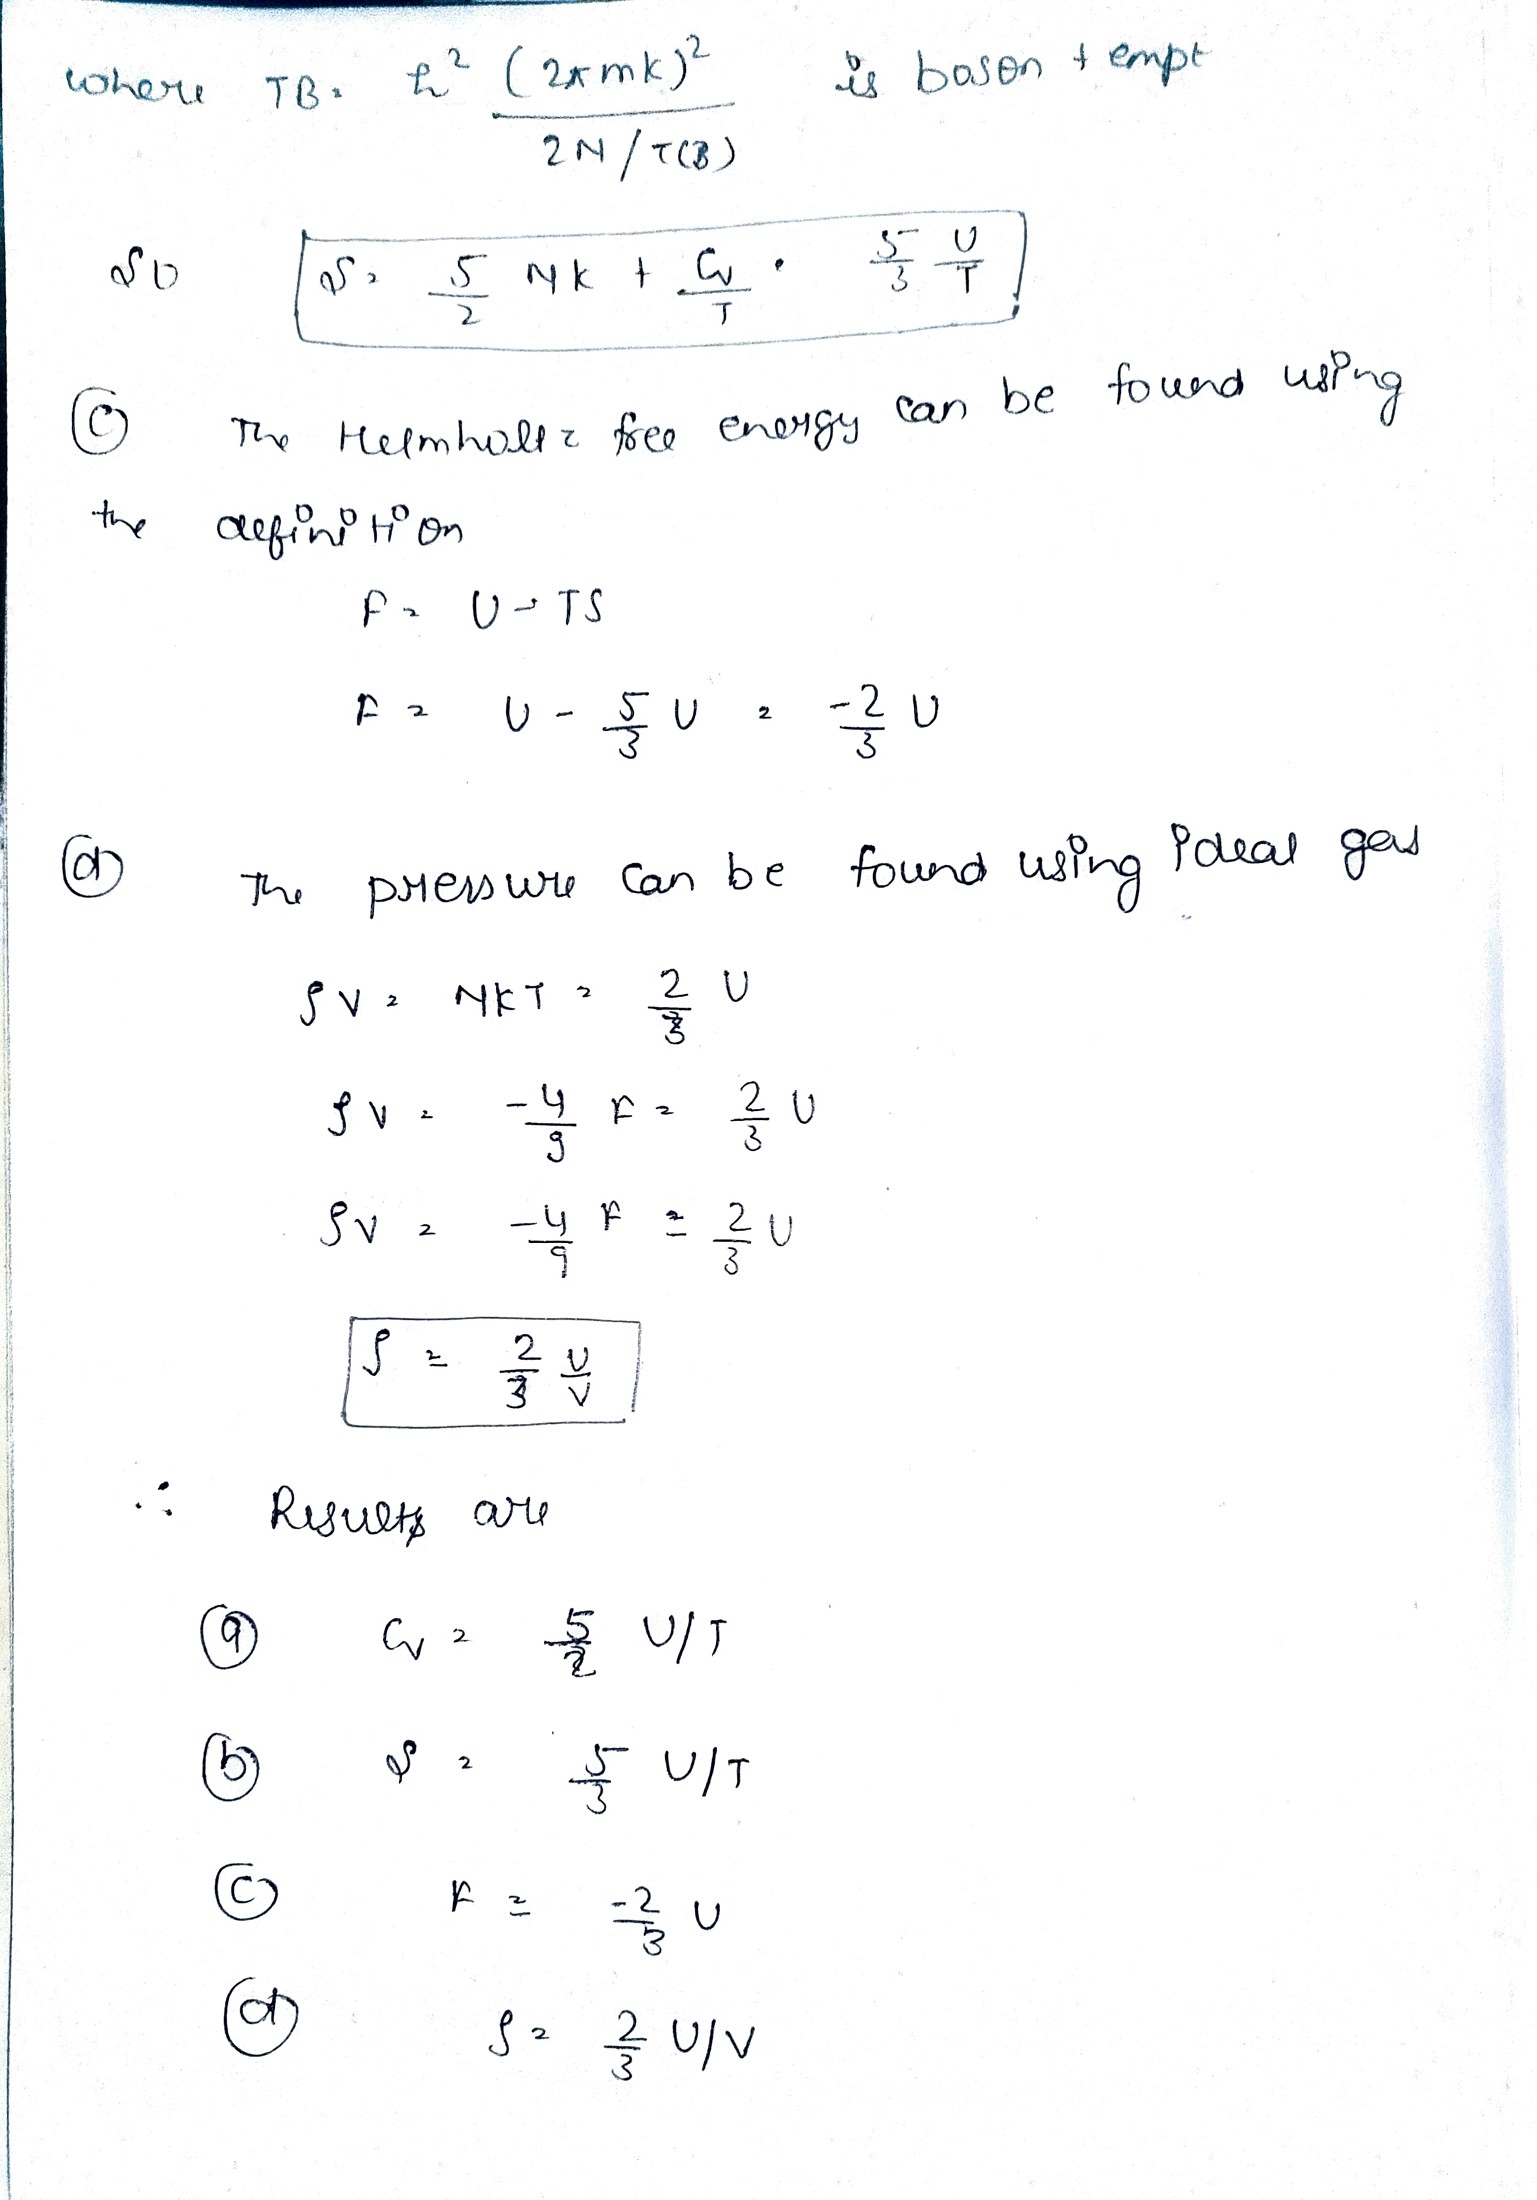 where TB = ħ² (2πmk)² / 2N/T(B) is boson tempt
So S = 5/2 Nk + Cv/T · 5/3 U/T
(c) The Helmholtz free energy can be found using
the definition
F = U - TS
F = U - 5/3 U = -2/3 U
(d) The pressure can be found using ideal gas
PV = NKT = 2/3 U
PV = -4/9 F = 2/3 U
PV = -4/9 F = 2/3 U
P = 2/3 U/V
∴ Results are
(a) Cv = 5/2 U/T
(b) S = 5/3 U/T
(c) F = -2/3 U
(d) P = 2/3 U/V